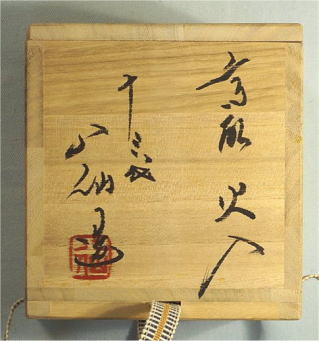 高取 火入
十三代
八仙 造